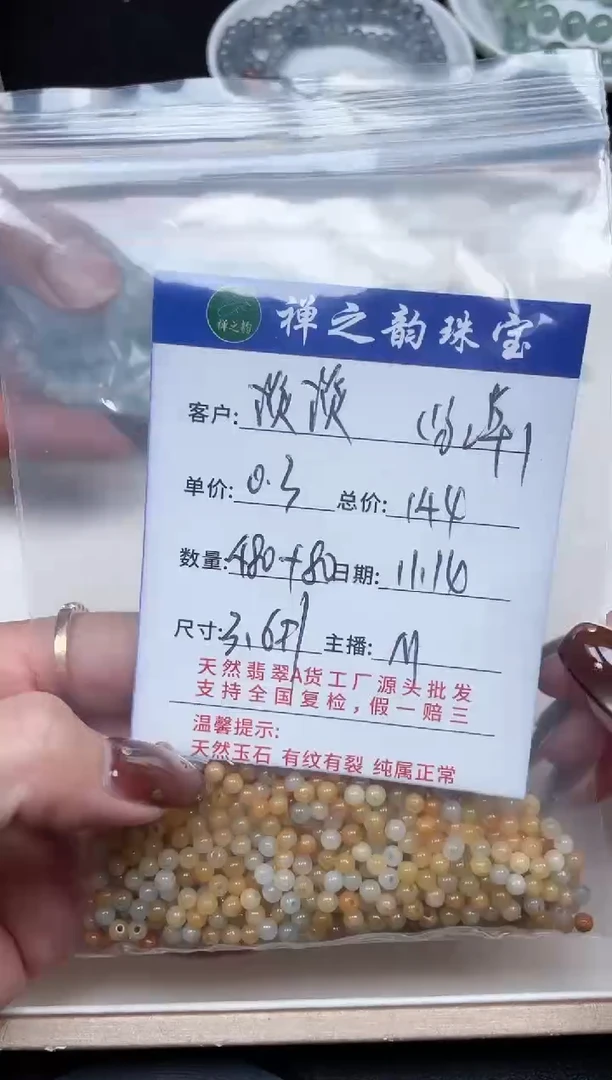 禅之韵
禅之韵珠宝
客户:
单价:0.3 总价:144
数量:480+80 日期:11.14
尺寸:3.6 主播:M
天然翡翠A货工厂源头批发
支持全国复检,假一赔三
温馨提示:
天然玉石 有纹有裂 纯属正常